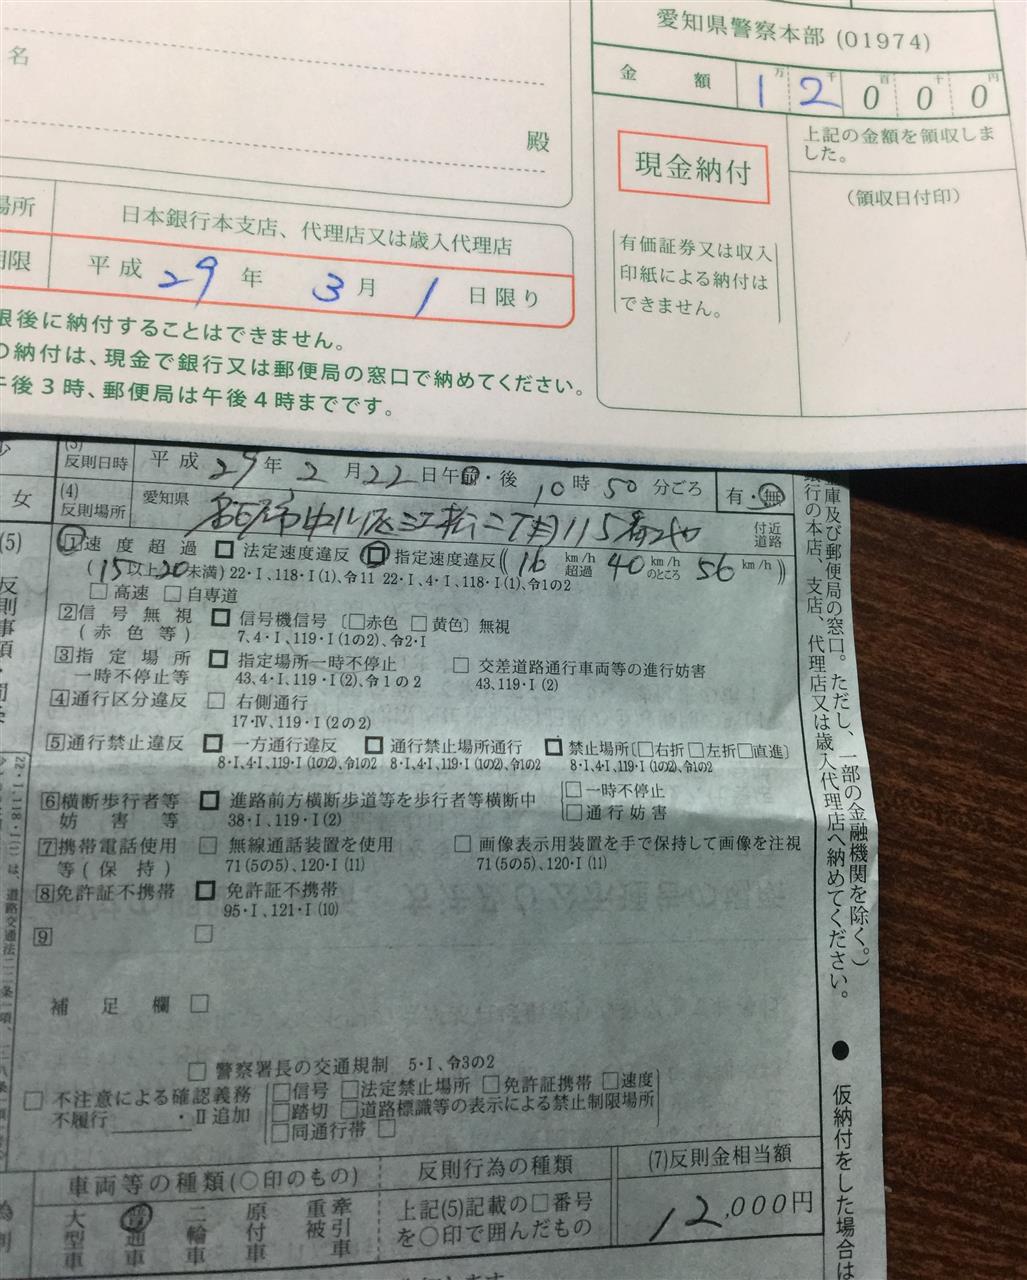 愛知県警察本部 (01974)
金 額 1万 2千 0百 0十 0円
名
殿
現金納付
上記の金額を領収しま
した。
(領収日付印)
場所 日本銀行本支店、代理店又は歳入代理店
期限 平成 29 年 3 月 1 日限り
有価証券又は収入
印紙による納付は
できません。
限後に納付することはできません。
の納付は、現金で銀行又は郵便局の窓口で納めてください。
午後3時、郵便局は午後4時までです。
女
(3)
反則日時 平成 29 年 2 月 22 日午前・後 10 時 50 分ごろ
有・無
(4)
反則場所 愛知県 名古屋市中川区江松二丁目115番地 付近
道路
(5)
1 速度超過 □ 法定速度違反 □ 指定速度違反 (( 16 km/h超過 40 km/hのところ 56 km/h ))
(15以上20未満) 22・I、118・I(1)、令11 22・I、4・I、118・I(1)、令1の2
□ 高速 □ 自専道
2 信号無視 □ 信号機信号 〔□赤色 □ 黄色〕無視
(赤色等) 7、4・I、119・I(1の2)、令2・I
3 指定場所 □ 指定場所一時不停止 □ 交差道路通行車両等の進行妨害
一時不停止等 43、4・I、119・I(2)、令1の2 43、119・I(2)
4 通行区分違反 □ 右側通行
17・Ⅳ、119・I(2の2)
5 通行禁止違反 □ 一方通行違反 □ 通行禁止場所通行 □ 禁止場所〔□右折 □左折 □直進〕
8・I、4・I、119・I(1の2)、令1の2 8・I、4・I、119・I(1の2)、令1の2 8・I、4・I、119・I(1の2)、令1の2
6 横断歩行者等 □ 進路前方横断歩道等を歩行者等横断中 □一時不停止
妨害等 38・I、119・I(2) □通行妨害
7 携帯電話使用 □ 無線通話装置を使用 □ 画像表示用装置を手で保持して画像を注視
等(保持) 71(5の5)、120・I(11) 71(5の5)、120・I(11)
8 免許証不携帯 □ 免許証不携帯
95・I、121・I(10)
9 □
補足欄 □
□ 警察署長の交通規制 5・I、令3の2
□ 不注意による確認義務 □信号 □法定禁止場所 □免許証携帯 □速度
不履行 ・Ⅱ追加 □踏切 □道路標識等の表示による禁止制限場所
□同通行帯 □
車両等の種類(○印のもの) 反則行為の種類 (7)反則金相当額
大型車 普通車 二輪車 原付車 重被牽引車
上記(5)記載の□番号
を○印で囲んだもの
12,000円
金庫及び郵便局の窓口。ただし、一部の金融機関を除く。)
銀行の本店、支店、代理店又は歳入代理店へ納めてください。
● 仮納付をした場合は